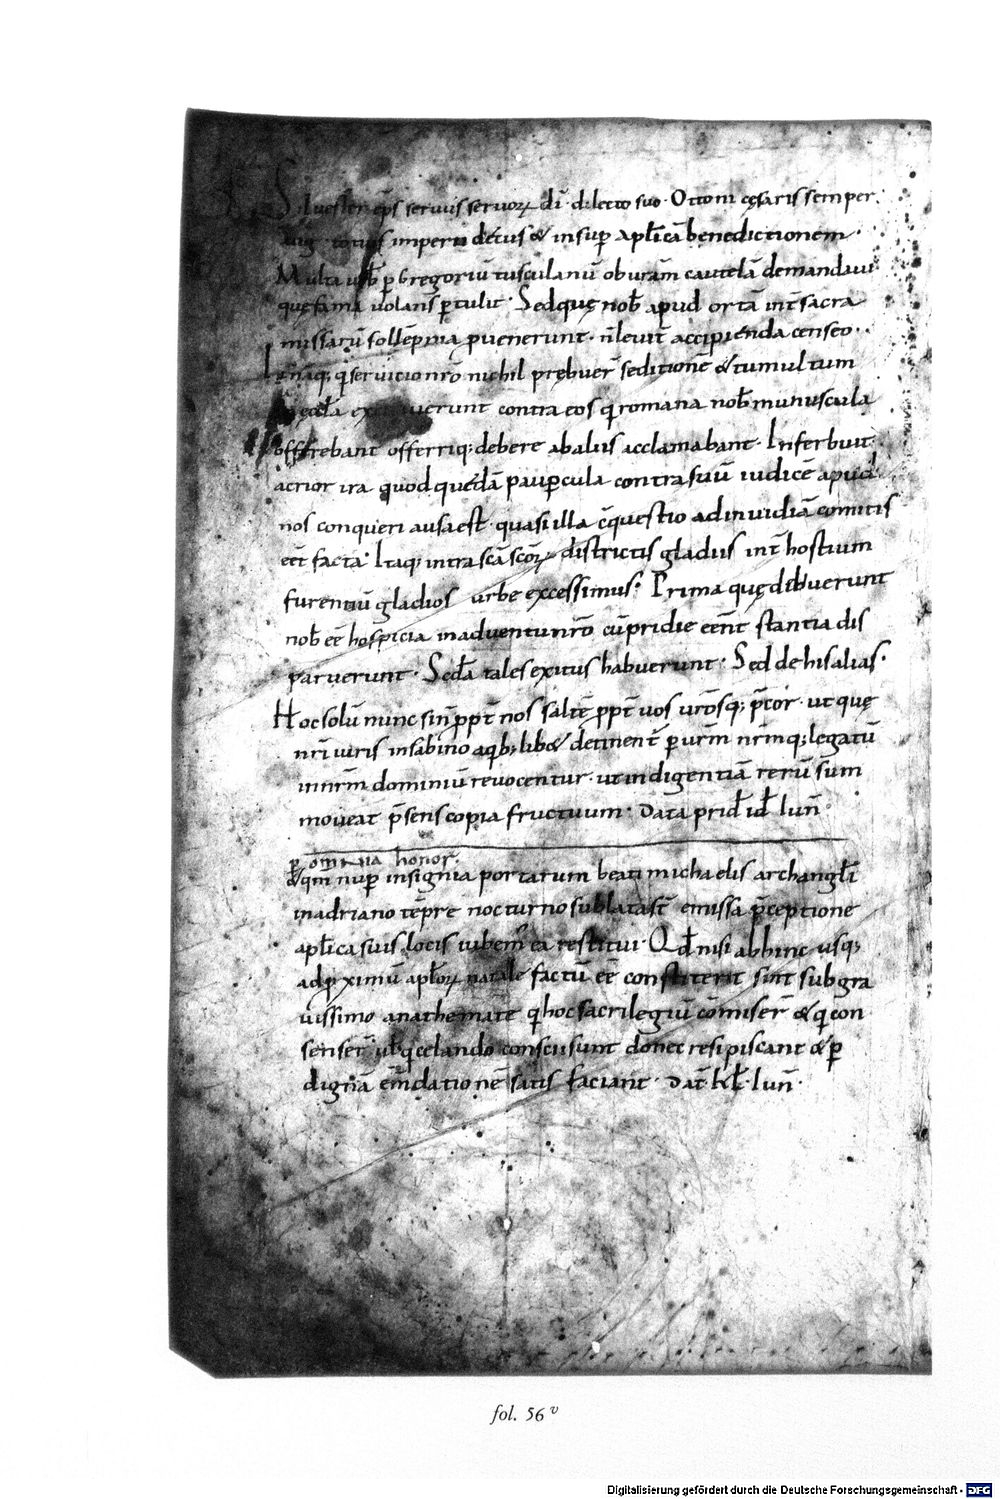 Siluester ep̄s seruus seruoꝝ dī · dilecto suo · Ottoni cęsaris semper
aug · totius imperii decus & insup̄ aplīcā benedictionem ·
Multa p̄ Gregoriū tusculanū ob uram̄ cautelā demandaui
quę fama uolans p̄tulit · Sed quę nob̄ apud ortā int̄ sacra
missarū sollēpnia puenerunt · n̄ leuit̄ accipienda censeo ·
nāq; q seruicio nrō nichil prębuer̄ seditionē & tumultum
contra eos q romana nob̄ munuscula
offerebant offerriq; debere ab aliis acclamabant · Inferbuit
acrior ira quod quędā paup̄cula contra suū iudicē apud
nos conqueri ausa est · quasi illa c̄questio ad inuidiā comitis
eēt facta · Itaq; intra scā scōꝝ districtis gladiis int̄ hostium
furentiū gladios urbe excessimus · Prima quę dibuerunt
nob̄ eē hospicia in aduentu nrō cū pridie eēnt stantia dis
paruerunt · Sed ā tales exitus habuerunt · Sed de his alias ·
Hoc solū nunc sin̄ ppt̄ nos saltē ppt̄ uos urōsq; p̄cor · ut quę
nrī iuris in sabino aq b; lib& detinent̄ p urm̄ nrm̄q; legatū
in nrm̄ dominiū reuocentur · ut indigentiā rerū sum̄
moueat p̄sens copia fructuum · Data prid̄ id̄ iun̄
p omnia honor ·
& qm̄ nup̄ insignia portarum beati michaelis archanglī
in adriano tēpre nocturno sublata st̄ emissa p̄ceptione
aplīca suis locis iubem̄ ea restitui · Qd̄ nisi abhinc usq;
ad p̄ximū aplōꝝ natale factū eē constiterit sint sub gra
uissimo anathemate q hoc sacrilegiū cōmiser̄ & q con
senser̄ ul̄ q celando conscii sunt donec resipiscant & p
dignā em̄dationē satis faciant · Dat̄ kl̄ · iun̄ ·
fol. 56ᵛ
Digitalisierung gefördert durch die Deutsche Forschungsgemeinschaft · DFG